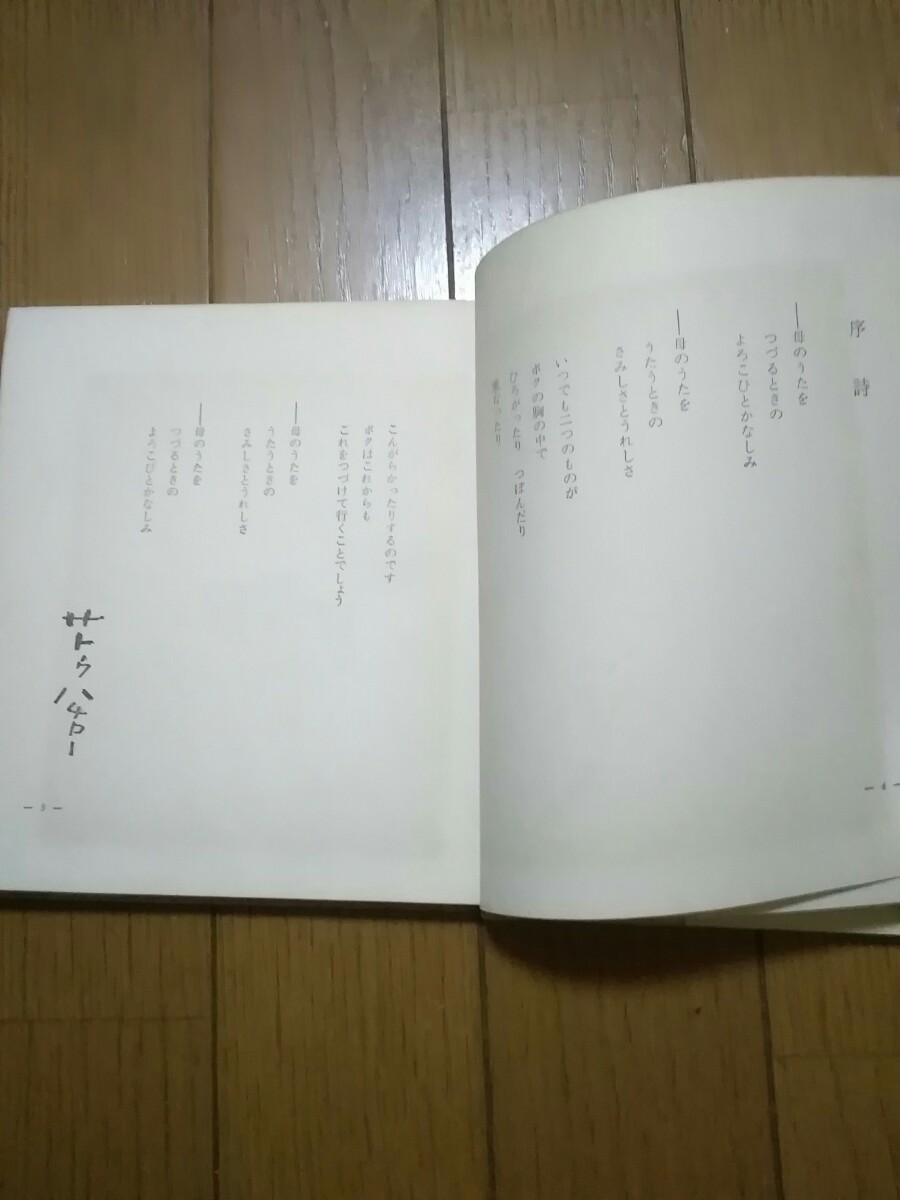 序詩
──母のうたを
つづるときの
よろこびとかなしみ
──母のうたを
うたうときの
さみしさとうれしさ
いつでも二つのものが
ボクの胸の中で
ひろがったり つぼんだり
重なったり
— 4 —
こんがらかったりするのです
ボクはこれからも
これをつづけて行くことでしょう
──母のうたを
うたうときの
さみしさとうれしさ
──母のうたを
つづるときの
よろこびとかなしみ
サトウハチロー
— 5 —